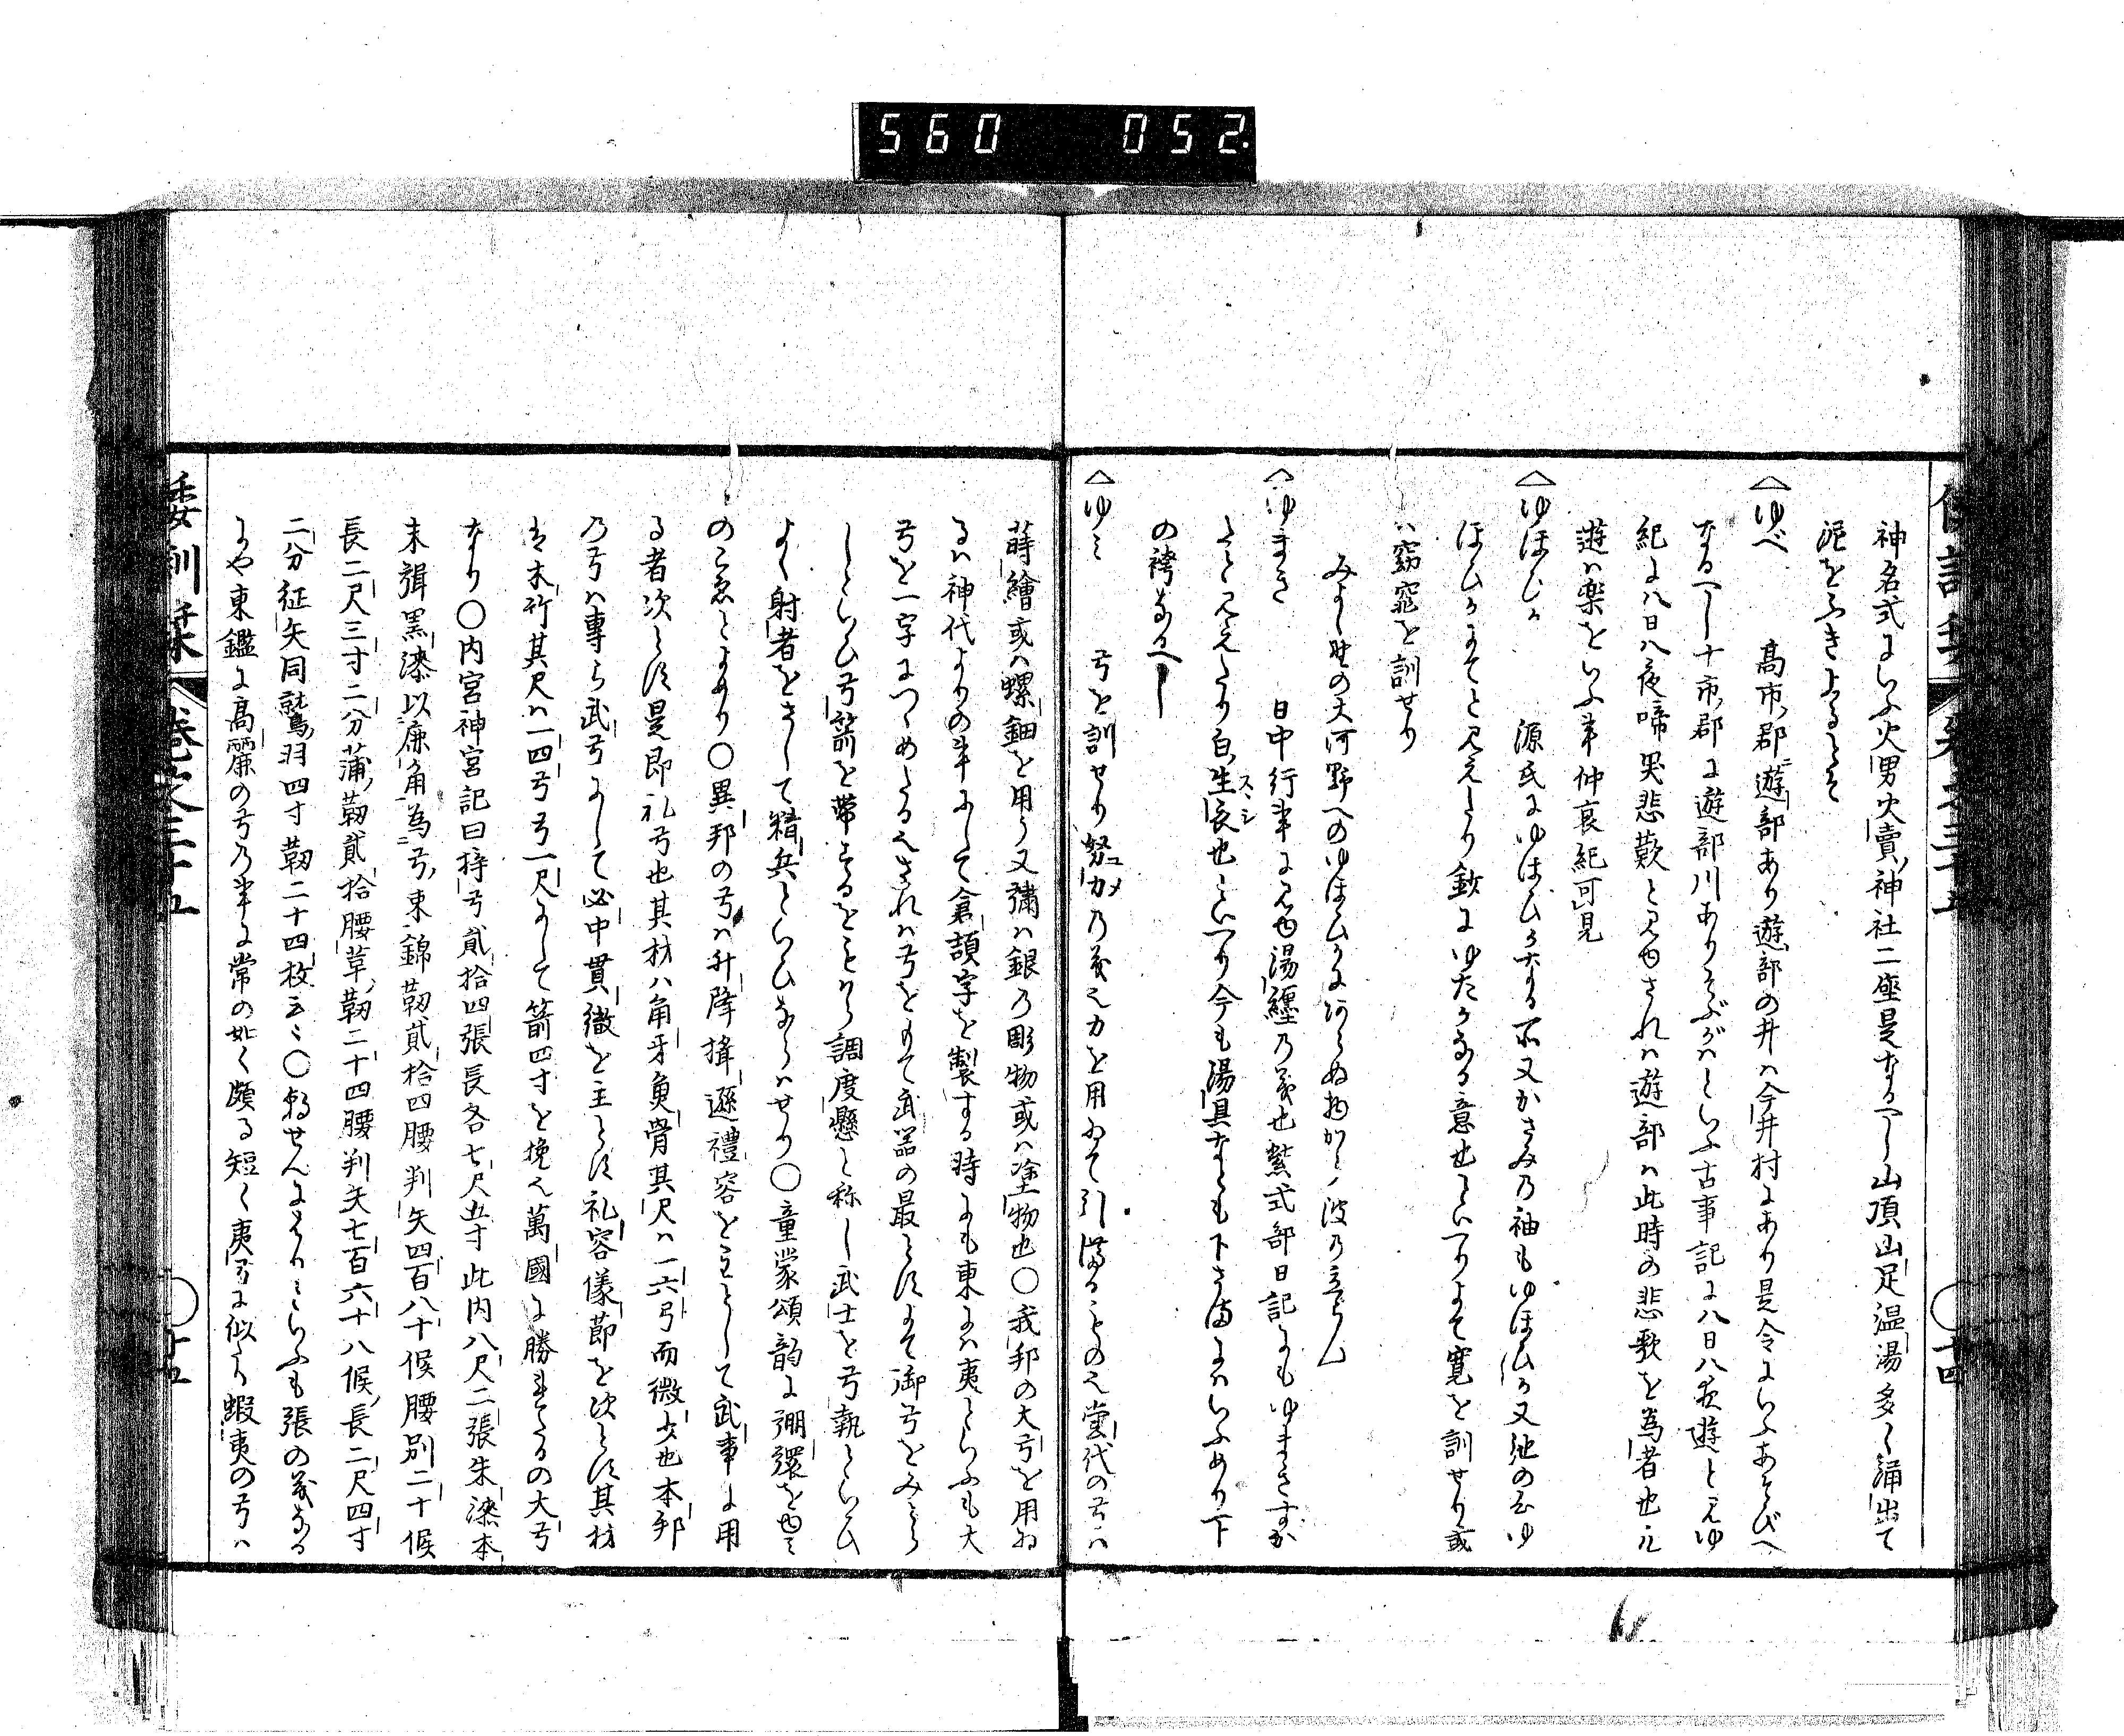 560 052
神名式にいふ火男火賣神社二座是なるへし山頂山足温湯多く涌出て
泥をふきよるとそ
ゆべ 高市郡遊部あり遊部の井ハ今井村にあり是令にいふあそびへ
なるへし十市郡に遊部川ありそぶがハといふ古事記に八日八夜遊と見ゆ
紀に八日八夜啼哭悲歎と見ゆされハ遊部ハ此時の悲歌を為者也凡
遊ハ楽をいふ事仲哀紀可見
ゆほひか 源氏にゆほひかなる所又かさみの袖もゆほひか又池の
ほひかにてと見えたり鈔にゆたかなる意也といへりよて寛を訓せり或
ハ窈窕を訓せり
みよし野の大河野へのゆほひかに
ゆまき 日中行事に見ゆ湯纏の義也紫式部日記にもゆまきすが
たと見えたり白生衣也といへり今も湯具なとも下さまにハいふめり下
の袴なるへし
ゆミ 弓を訓せり努力の義也力を用ゐて引満るもの也當代の弓ハ
蒔繪或ハ螺鈿を用う又彌ハ銀の彫物或ハ塗物也〇我邦の大弓を用ゐ
るハ神代よりの事にして倉頡字を製する時にも東にハ夷といふも大
弓を一字につゝめたる也されハ弓をもて武器の最とすよて御弓をみとら
しといひ弓箭を帯するをことから調度懸と称し武士を弓執といひ
よく射者をさして精兵といひならハせり〇童蒙頌韵に弸彋をゆミ
のこゑとよめり〇異邦の弓ハ升降揖遜禮容を主として武事に用
る者次とす是即礼弓也其材ハ角牙魚骨其尺ハ一六弓而微少也本邦
の弓ハ専ら武弓にして必中貫徹を主とす礼容儀節を次とす其材
は木竹其尺ハ一四弓弓一尺にして箭四寸を挽く萬國に勝れたるの大弓
なり〇内宮神宮記曰梓弓貳拾四張長各七尺五寸此内八尺二張朱漆本
末弭黒漆以鹿角為弓東錦靱貳拾四腰判矢四百八十候腰別二十候
長二尺三寸二分蒲靱貳拾腰草靱二十四腰判矢七百六十八候長二尺四寸
二分征矢同鷲羽四寸靱二十四枚云々〇弱せんにはりといふも張の義なる
にや東鑑に高麗の弓の事に常の如く頗る短く夷弓に似たり蝦夷の弓ハ
倭訓栞 巻之三十五 十四
倭訓栞 巻之三十五 十五